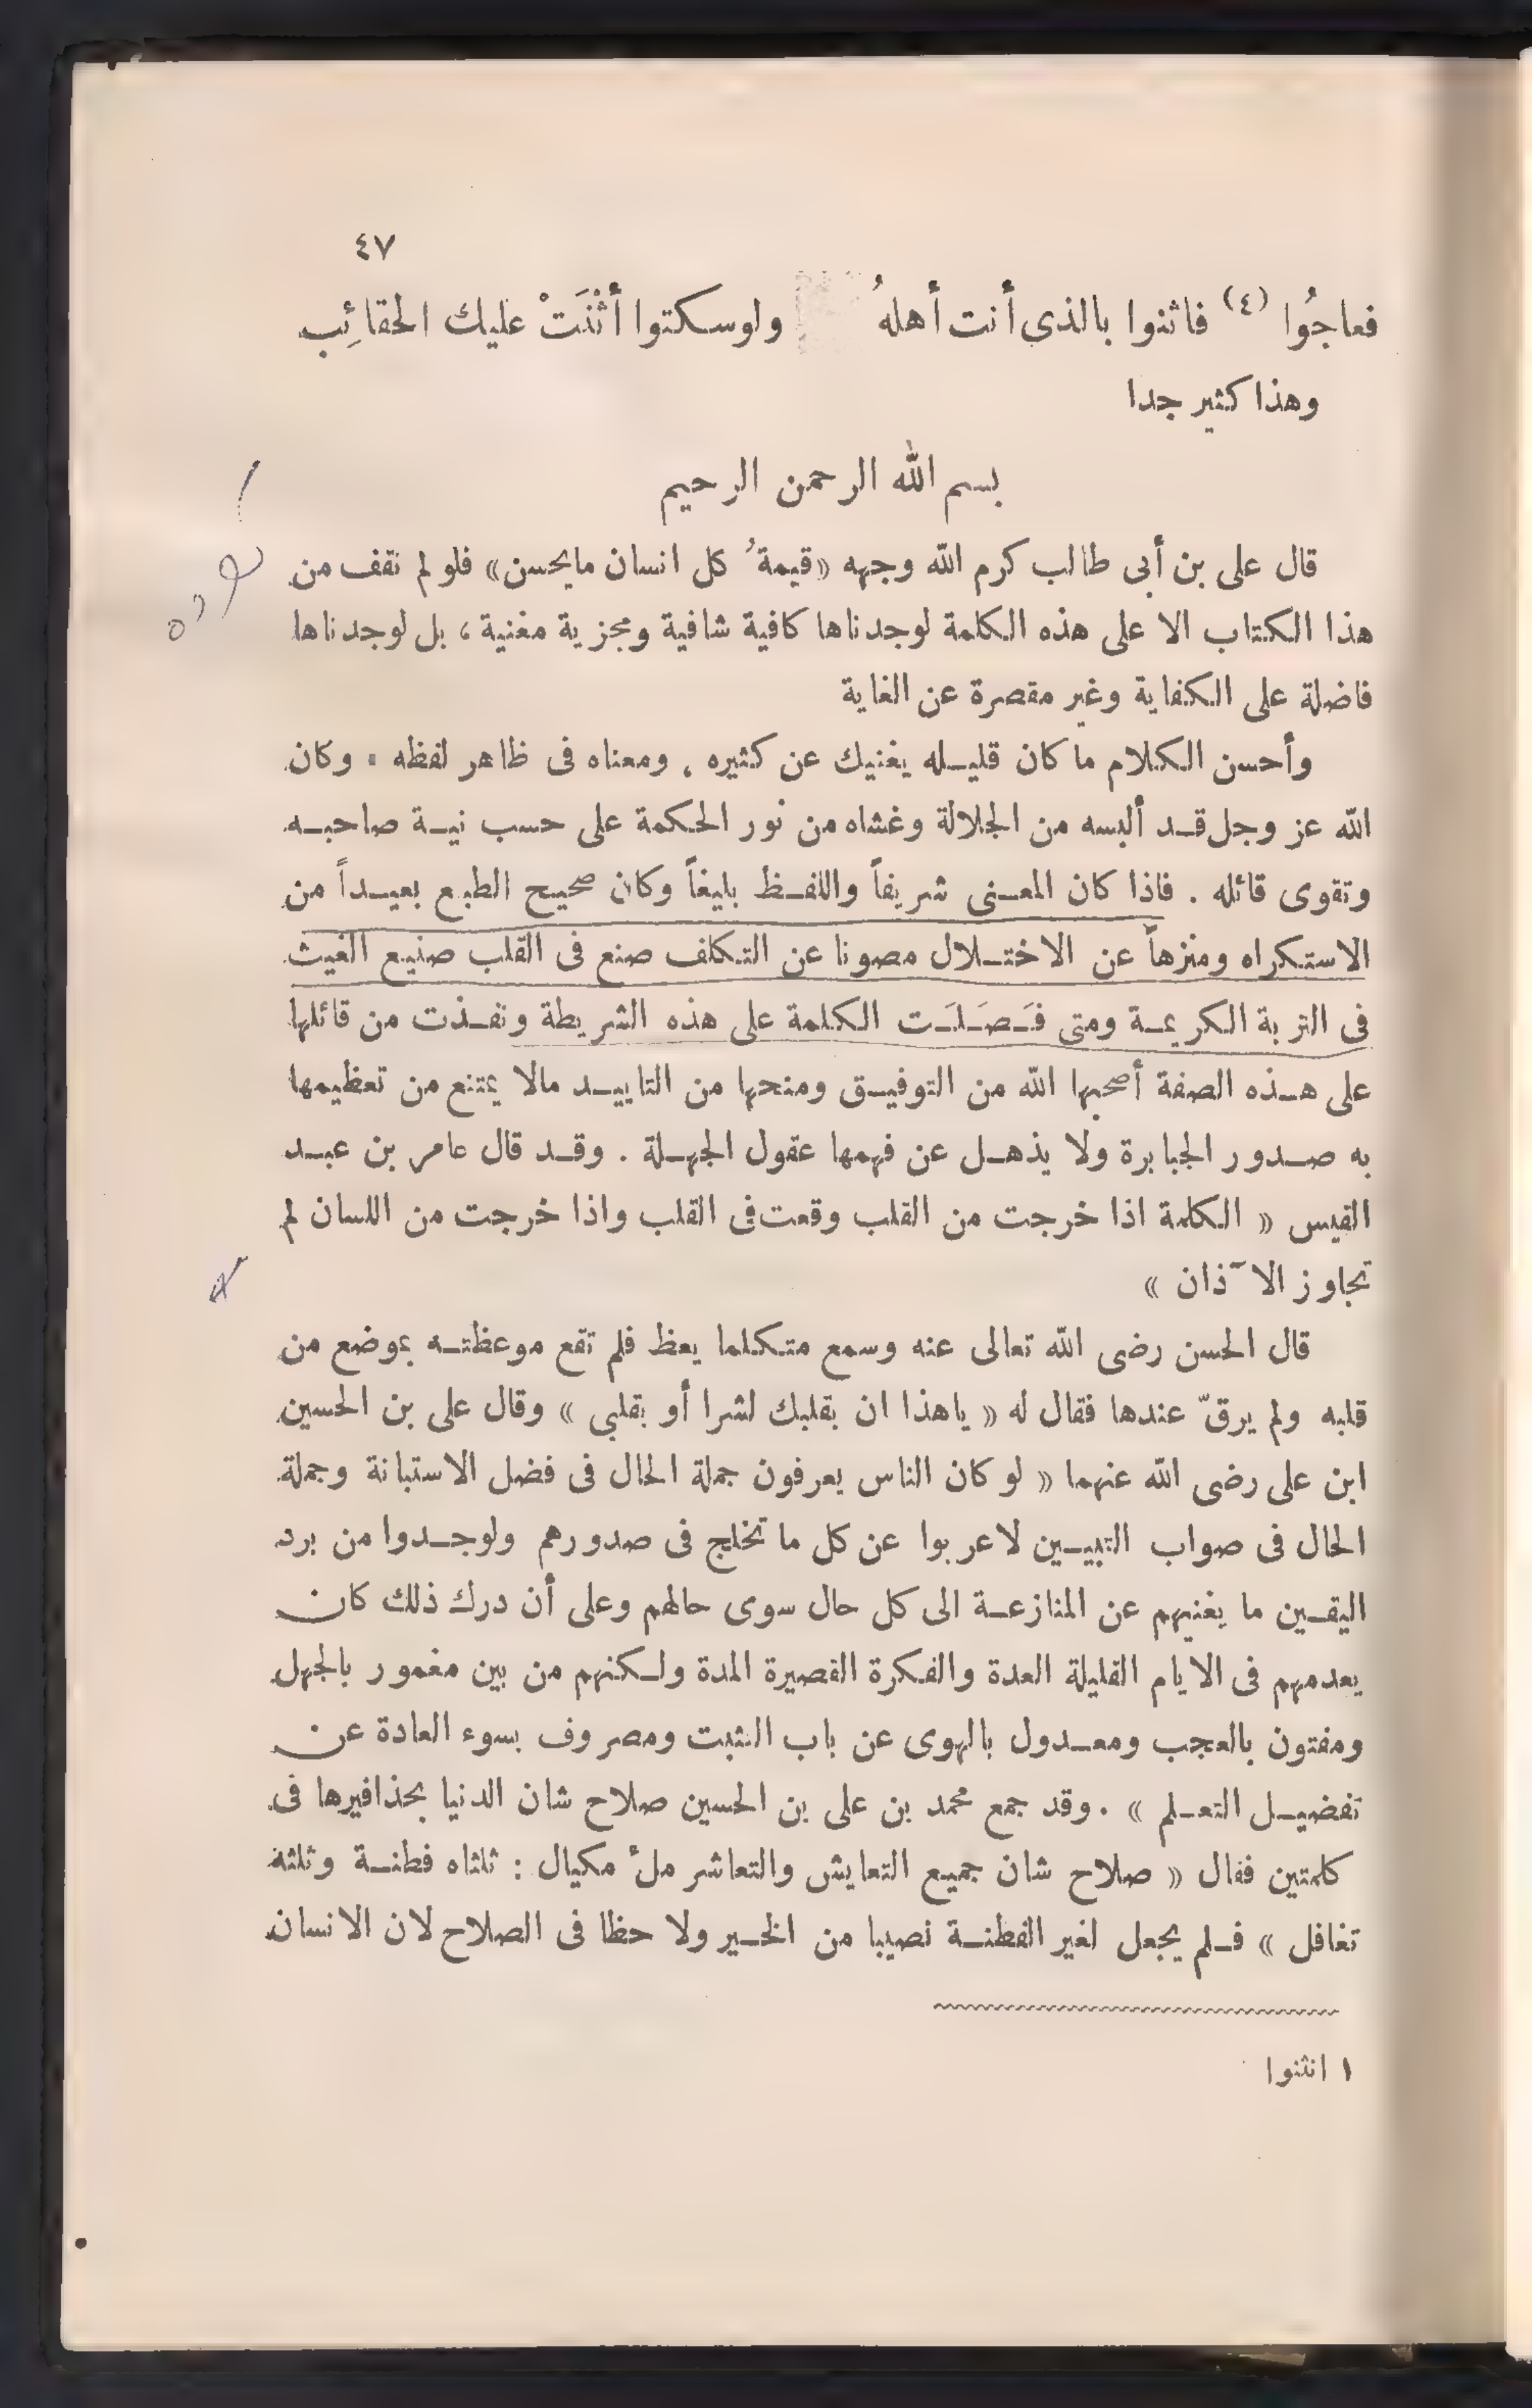 ٤٧
فعاجُوا (٤) فاثنوا بالذى أنت أهلهُ ولو سكتوا أثْنَتْ عليك الحقائِب
وهذا كثير جدا
بسم الله الرحمن الرحيم
قال على بن أبى طالب كرم الله وجهه «قيمةُ كل انسان مايحسن» فلو لم نقف من
هذا الكتاب الا على هذه الكلمة لوجدناها كافية شافية ومجزية مغنية، بل لوجدناها
فاضلة على الكفاية وغير مقصرة عن الغاية
وأحسن الكلام ما كان قليله يغنيك عن كثيره ، ومعناه فى ظاهر لفظه . وكان
الله عز وجل قد ألبسه من الجلالة وغشاه من نور الحكمة على حسب نية صاحبه
وتقوى قائله . فاذا كان المعنى شريفاً واللفظ بليغاً وكان صحيح الطبع بعيداً من
الاستكراه ومنزهاً عن الاختلال مصونا عن التكلف صنع فى القلب صنيع الغيث
فى التربة الكريمة ومتى فَصَلَت الكلمة على هذه الشريطة ونفذت من قائلها
على هذه الصفة أصحبها الله من التوفيق ومنحها من التاييد مالا يمتنع من تعظيمها
به صدور الجبابرة ولا يذهل عن فهمها عقول الجهلة . وقد قال عامر بن عبد
القيس « الكلمة اذا خرجت من القلب وقعت فى القلب واذا خرجت من اللسان لم
تجاوز الآذان »
قال الحسن رضى الله تعالى عنه وسمع متكلما يعظ فلم تقع موعظته بموضع من
قلبه ولم يرقّ عندها فقال له « ياهذا ان بقلبك لشرا أو بقلبى » وقال على بن الحسين
ابن على رضى الله عنهما « لو كان الناس يعرفون جملة الحال فى فضل الاستبانة وجملة
الحال فى صواب التبيين لاعربوا عن كل ما تخلج فى صدورهم ولوجدوا من برد
اليقين ما يغنيهم عن المنازعة الى كل حال سوى حالهم وعلى أن درك ذلك كان
يعدمهم فى الايام القليلة العدة والفكرة القصيرة المدة ولكنهم من بين مغمور بالجهل
ومفتون بالعجب ومعدول بالهوى عن باب الثبت ومصروف بسوء العادة عن
تفضيل التعلم » . وقد جمع محمد بن على بن الحسين صلاح شان الدنيا بحذافيرها فى
كلمتين فقال « صلاح شان جميع التعايش والتعاشر ملْ مكيال : ثلثاه فطنة وثلثه
تغافل » فلم يجعل لغير الفطنة نصيبا من الخير ولا حظا فى الصلاح لان الانسان
١ انثنوا